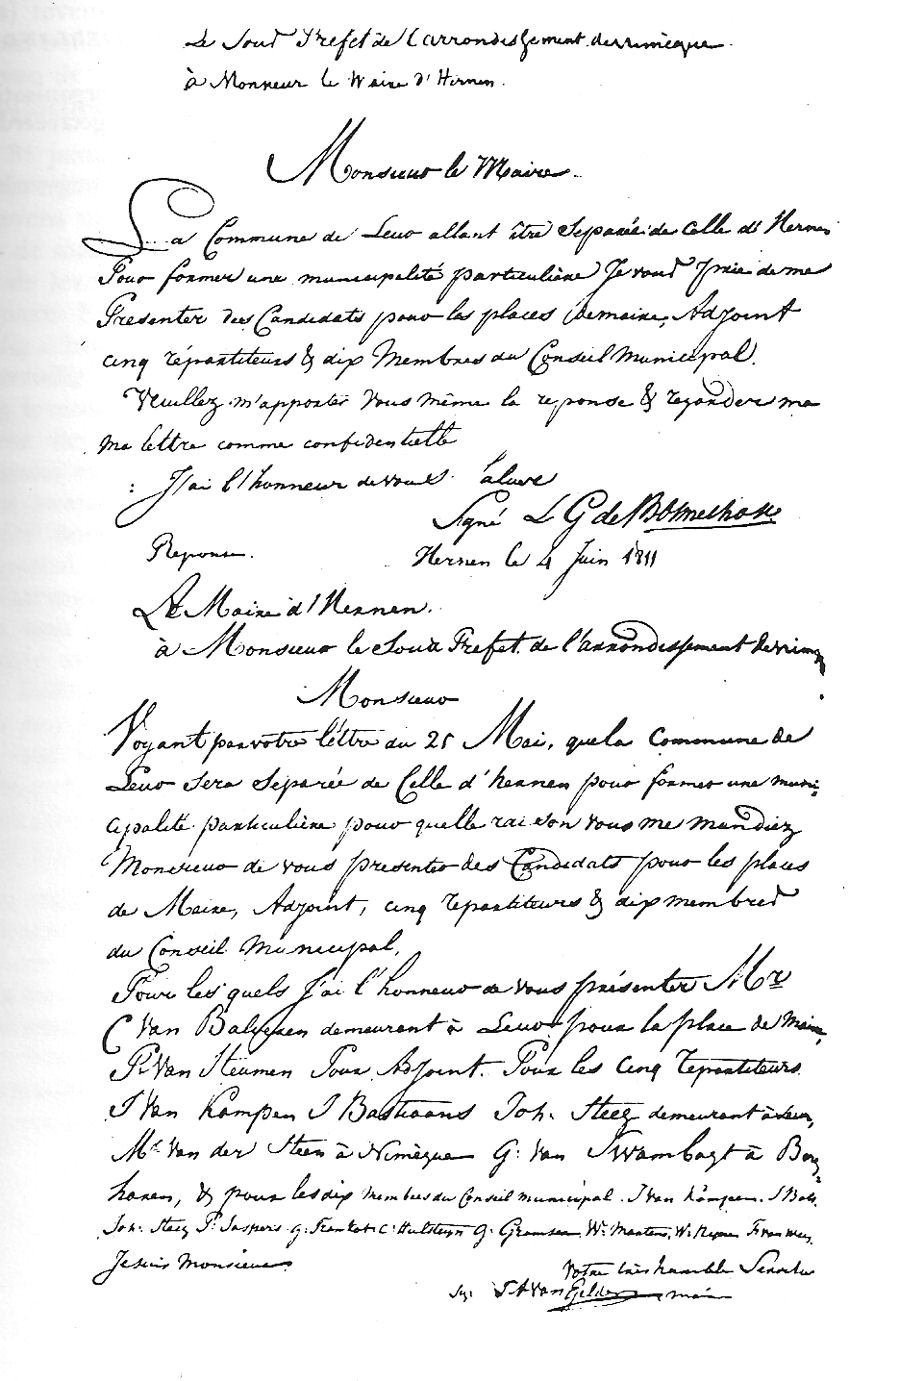 Le Sous Prefet de l'arrondissement de nimègue
à Monsieur le Maire d'Hernen.
Monsieur le Maire.
La Commune de Leur allant être separée de celle d'Hernen
Pour former une municipalité particulière Je vous prie de me
Presenter des Candidats pour les places de maire, Adjoint
cinq répartiteurs & dix Membres du Conseil Municipal.
Veuillez m'apporter vous même la reponse & regarder ma
ma lettre comme confidentielle
J'ai l'honneur de vous saluer
Signé L G de
Reponse. Hernen le 4 Juin 1811
Le Maire d'Hernen.
à Monsieur le Sous Prefet de l'arrondissement de nim
Monsieur
Voyant par votre léttre du 25 Mai, que la Commune de
Leur sera separée de Celle d'hernen pour former une muni-
cipalité particulière pour quelle raison vous me mandiez
Monsieur de vous presenter des Candidats pour les places
de Maire, Adjoint, cinq repartiteurs & dix membres
du Conseil Municipal,
Pour les quels J'ai l'honneur de vous présenter Mr
C Van Balveren demeurant à Leur pour la place de Maire,
P. Van Steumen Pour Adjoint. Pour les Cinq repartiteurs
J Van Kampen J Bastiaans Joh. Steeg demeurant à Leur,
Mr Van der Steen à Nimègue G: Van Swambagt à Berg-
haren, & pour les dix Membres du Conseil municipal. J van Kampen. J Bas.
Joh. Steeg P. Jaspers G. C: G. W: Martens, W:
Je suis Monsieur Votre très humble Serviteur
Sig: J A Van Gelder maire